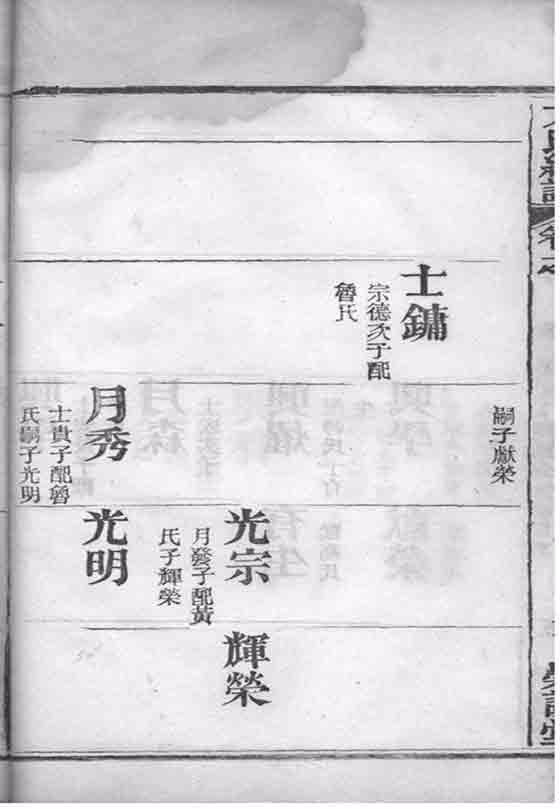 嗣子獻榮
士鏞
宗德次子配
魯氏
光宗
月發子配黃
氏子輝榮
輝榮
月秀
士貴子配魯
氏嗣子光明
光明